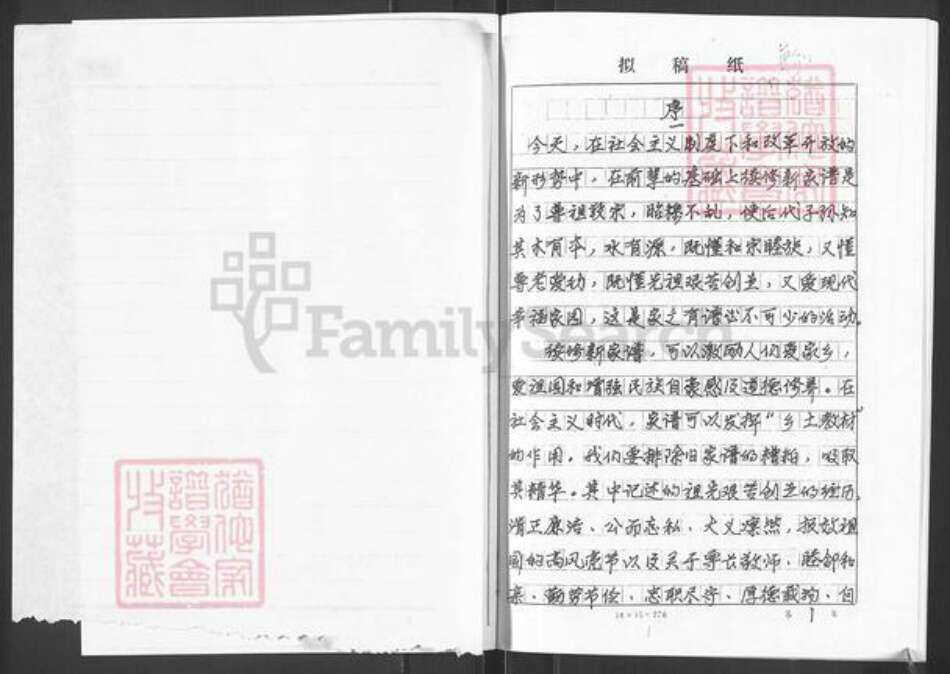 拟稿纸
序
今天，在社会主义制度下和改革开放的
新形势中，在前辈的基础上接修新家谱是
为了尊祖敬宗，昭穆不乱，使后代子孙知
其木有本，水有源，既懂和宗睦族，又懂
尊老爱幼，既懂先祖艰苦创业，又爱现代
幸福家园，这是家之有谱必不可少的活动。
接修新家谱，可以激励人们爱家乡，
爱祖国和增强民族自豪感及道德修养。在
社会主义时代，家谱可以发挥“乡土教材”
的作用。我们要排除旧家谱的糟粕，吸取
其精华。其中记述的祖先艰苦创业的经历，
清正廉洁、公而忘私、大义凛然，报效祖
国的高风亮节以及关于尊长敬师，睦邻和
亲、勤劳节俭、忠职尽守、厚德载物、自
第 1 页
FamilySearch
譜學會
收藏